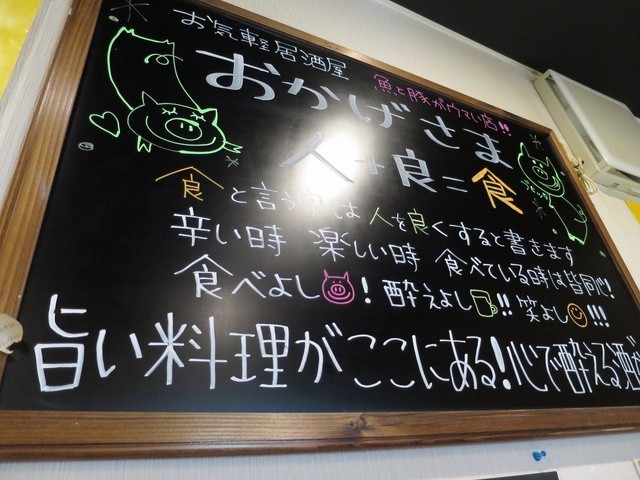 お気軽居酒屋
魚と豚がウマい店!!
おかげさま
人+良=食
食と言う字は人を良くすると書きます
辛い時 楽しい時 食べている時は皆同じ!
食べよし! 酔えよし!! 笑えよし!!!
旨い料理がここにある!心で酔える酒